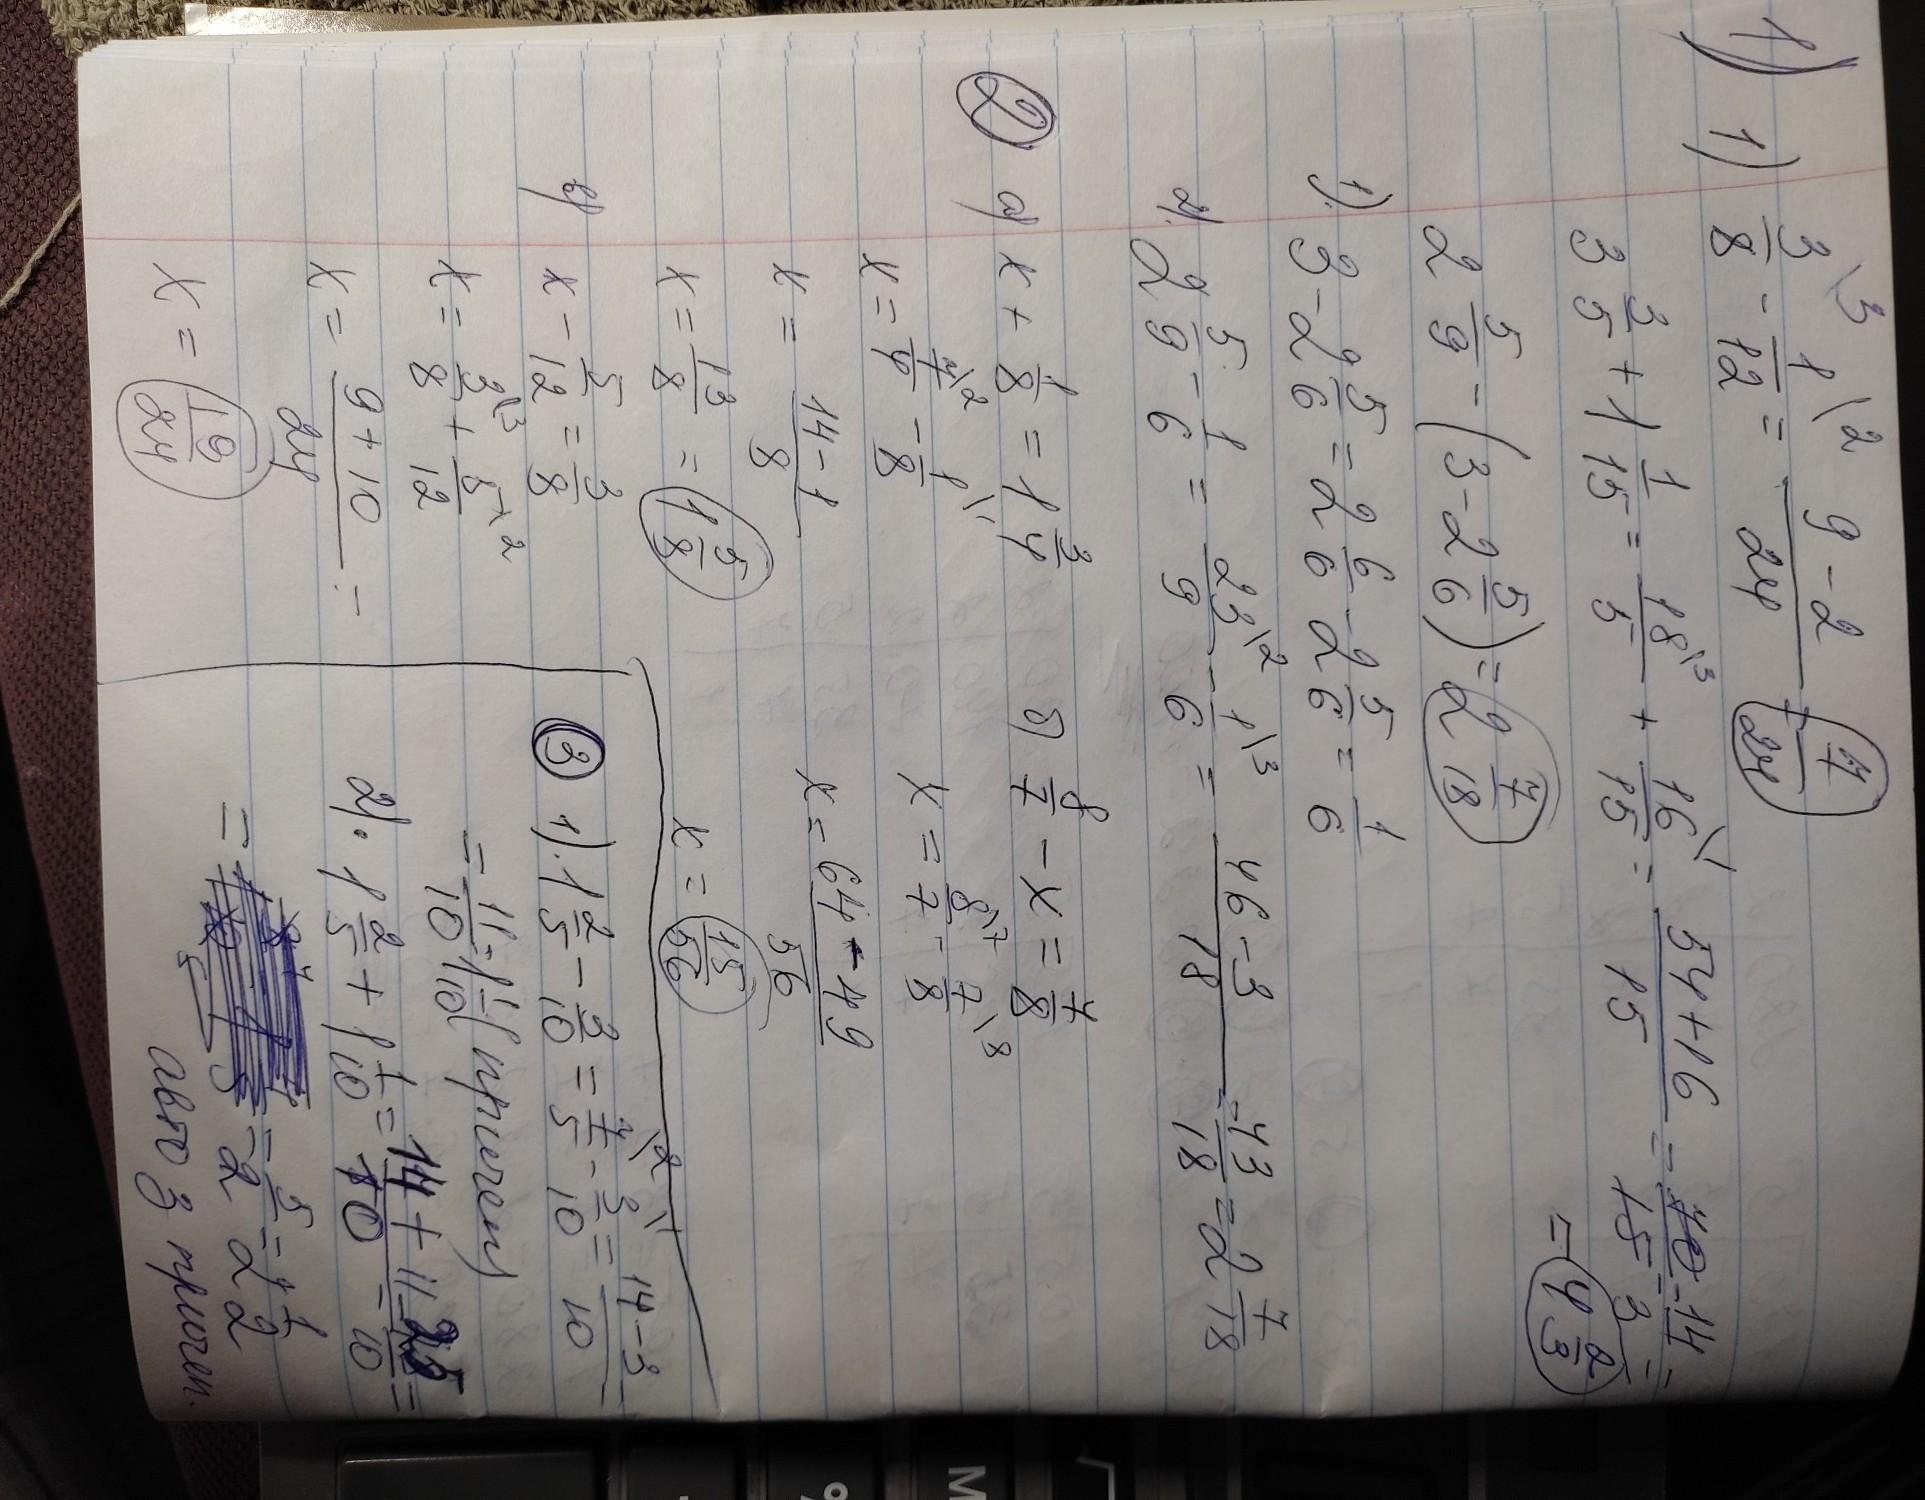 1) 1) 3/8\3 - 1/12\2 = (9-2)/24 = 7/24
3 3/5 + 1 1/15 = 18/5\3 + 16/15\1 = (54+16)/15 = 70/15 = 14/3 =
= 4 2/3
2 5/9 - (3 - 2 5/6) = 2 7/18
1). 3 - 2 5/6 = 2 6/6 - 2 5/6 = 1/6
2). 2 5/9 - 1/6 = 23/9\2 - 1/6\3 = (46-3)/18 = 43/18 = 2 7/18
2 а) x + 1/8 = 1 3/4
x = 7/4\2 - 1/8\1
x = (14-1)/8
x = 13/8 = 1 5/8
б) 8/7 - x = 7/8
x = 8/7\7 - 7/8\8
x = (64-49)/56
x = 15/56
в) x - 5/12 = 3/8
x = 3/8\3 + 5/12\2
x = (9+10)/24 =
x = 19/24
3 1). 1 2/5 - 3/10 = 7/5\2 - 3/10\1 = (14-3)/10 =
= 11/10 = 1 1/10 (причеп)
2). 1 2/5 + 1 1/10 = (14+11)/10 = 25/10 =
= 5/2 = 2 1/2
авто з причеп.